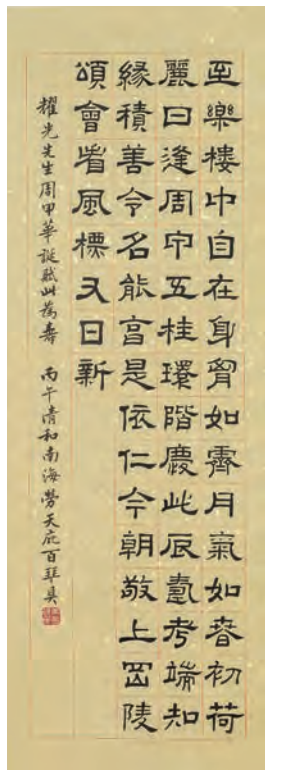 至樂樓中自在身胷如霽月氣如春初荷
麗日逢周甲五桂環階慶此辰壽考端知
緣積善令名能富是依仁今朝敬上岡陵
頌會看風標又日新
耀光先生周甲華誕賦此為壽 丙午清和南海勞天庇百拜具